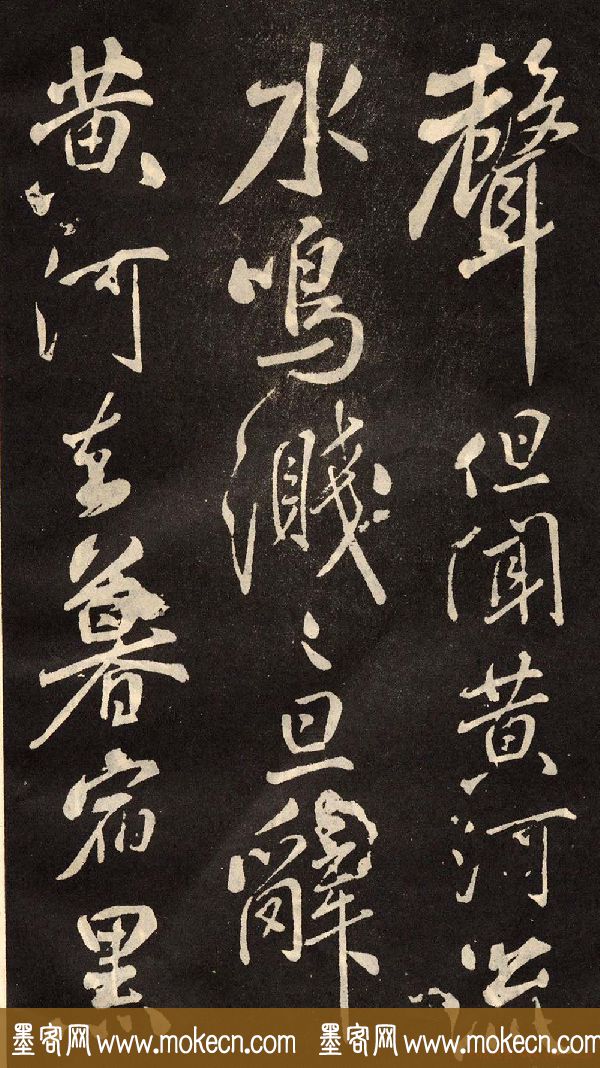 聲但聞黄河流
水鳴濺〻旦辭
黄河去暮宿黑
墨客网 www.mokecn.com 墨客网 www.mokecn.com